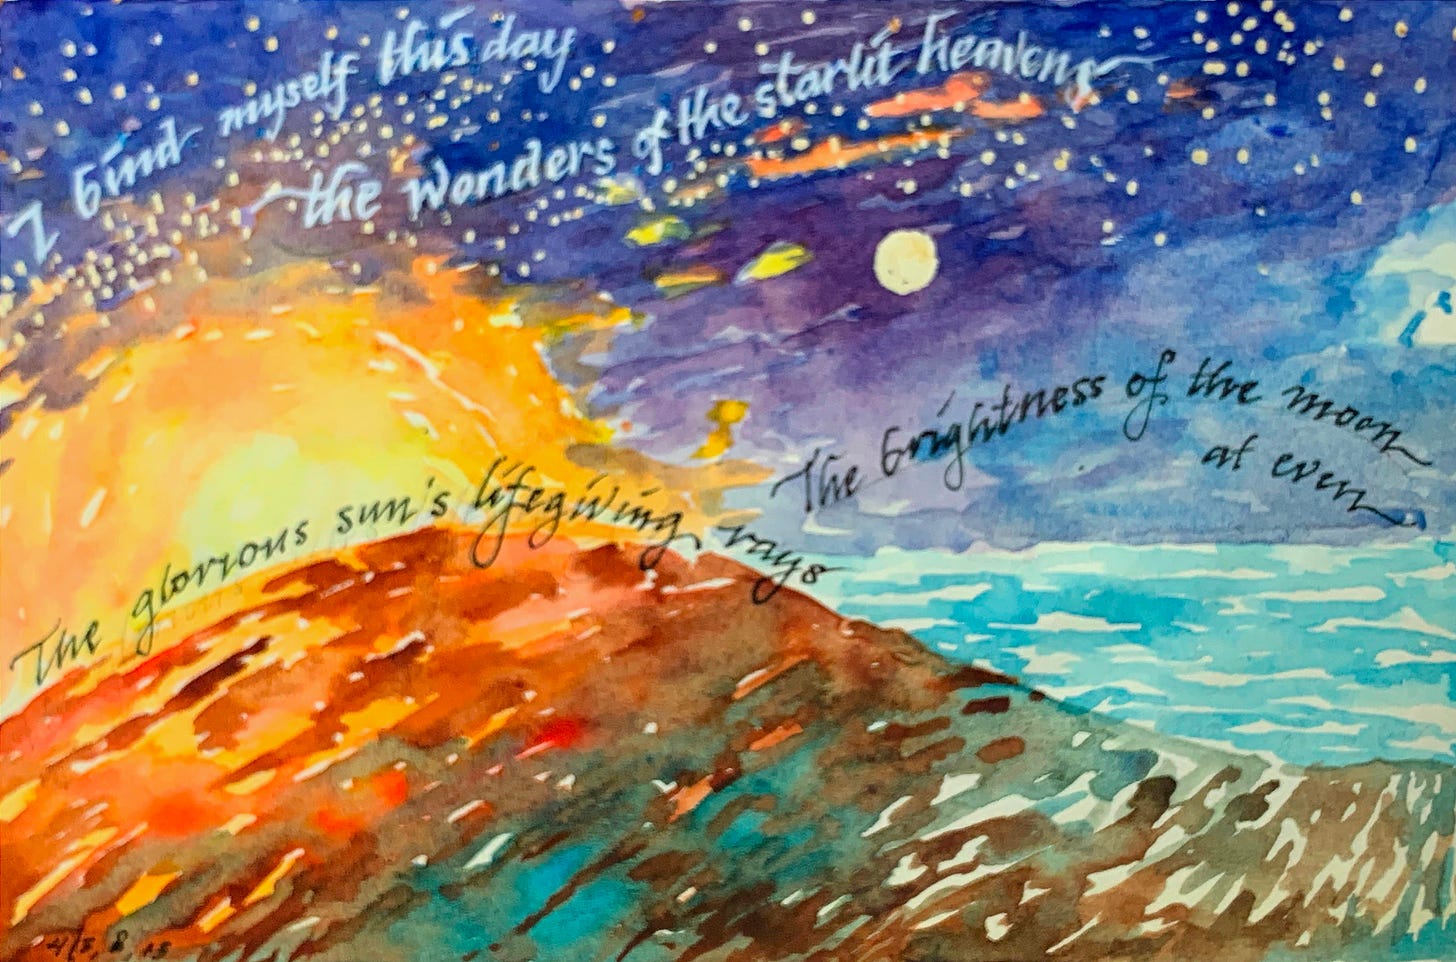 I bind myself this day
the wonders of the starlit heavens
The glorious sun's lifegiving rays
The brightness of the moon
at even